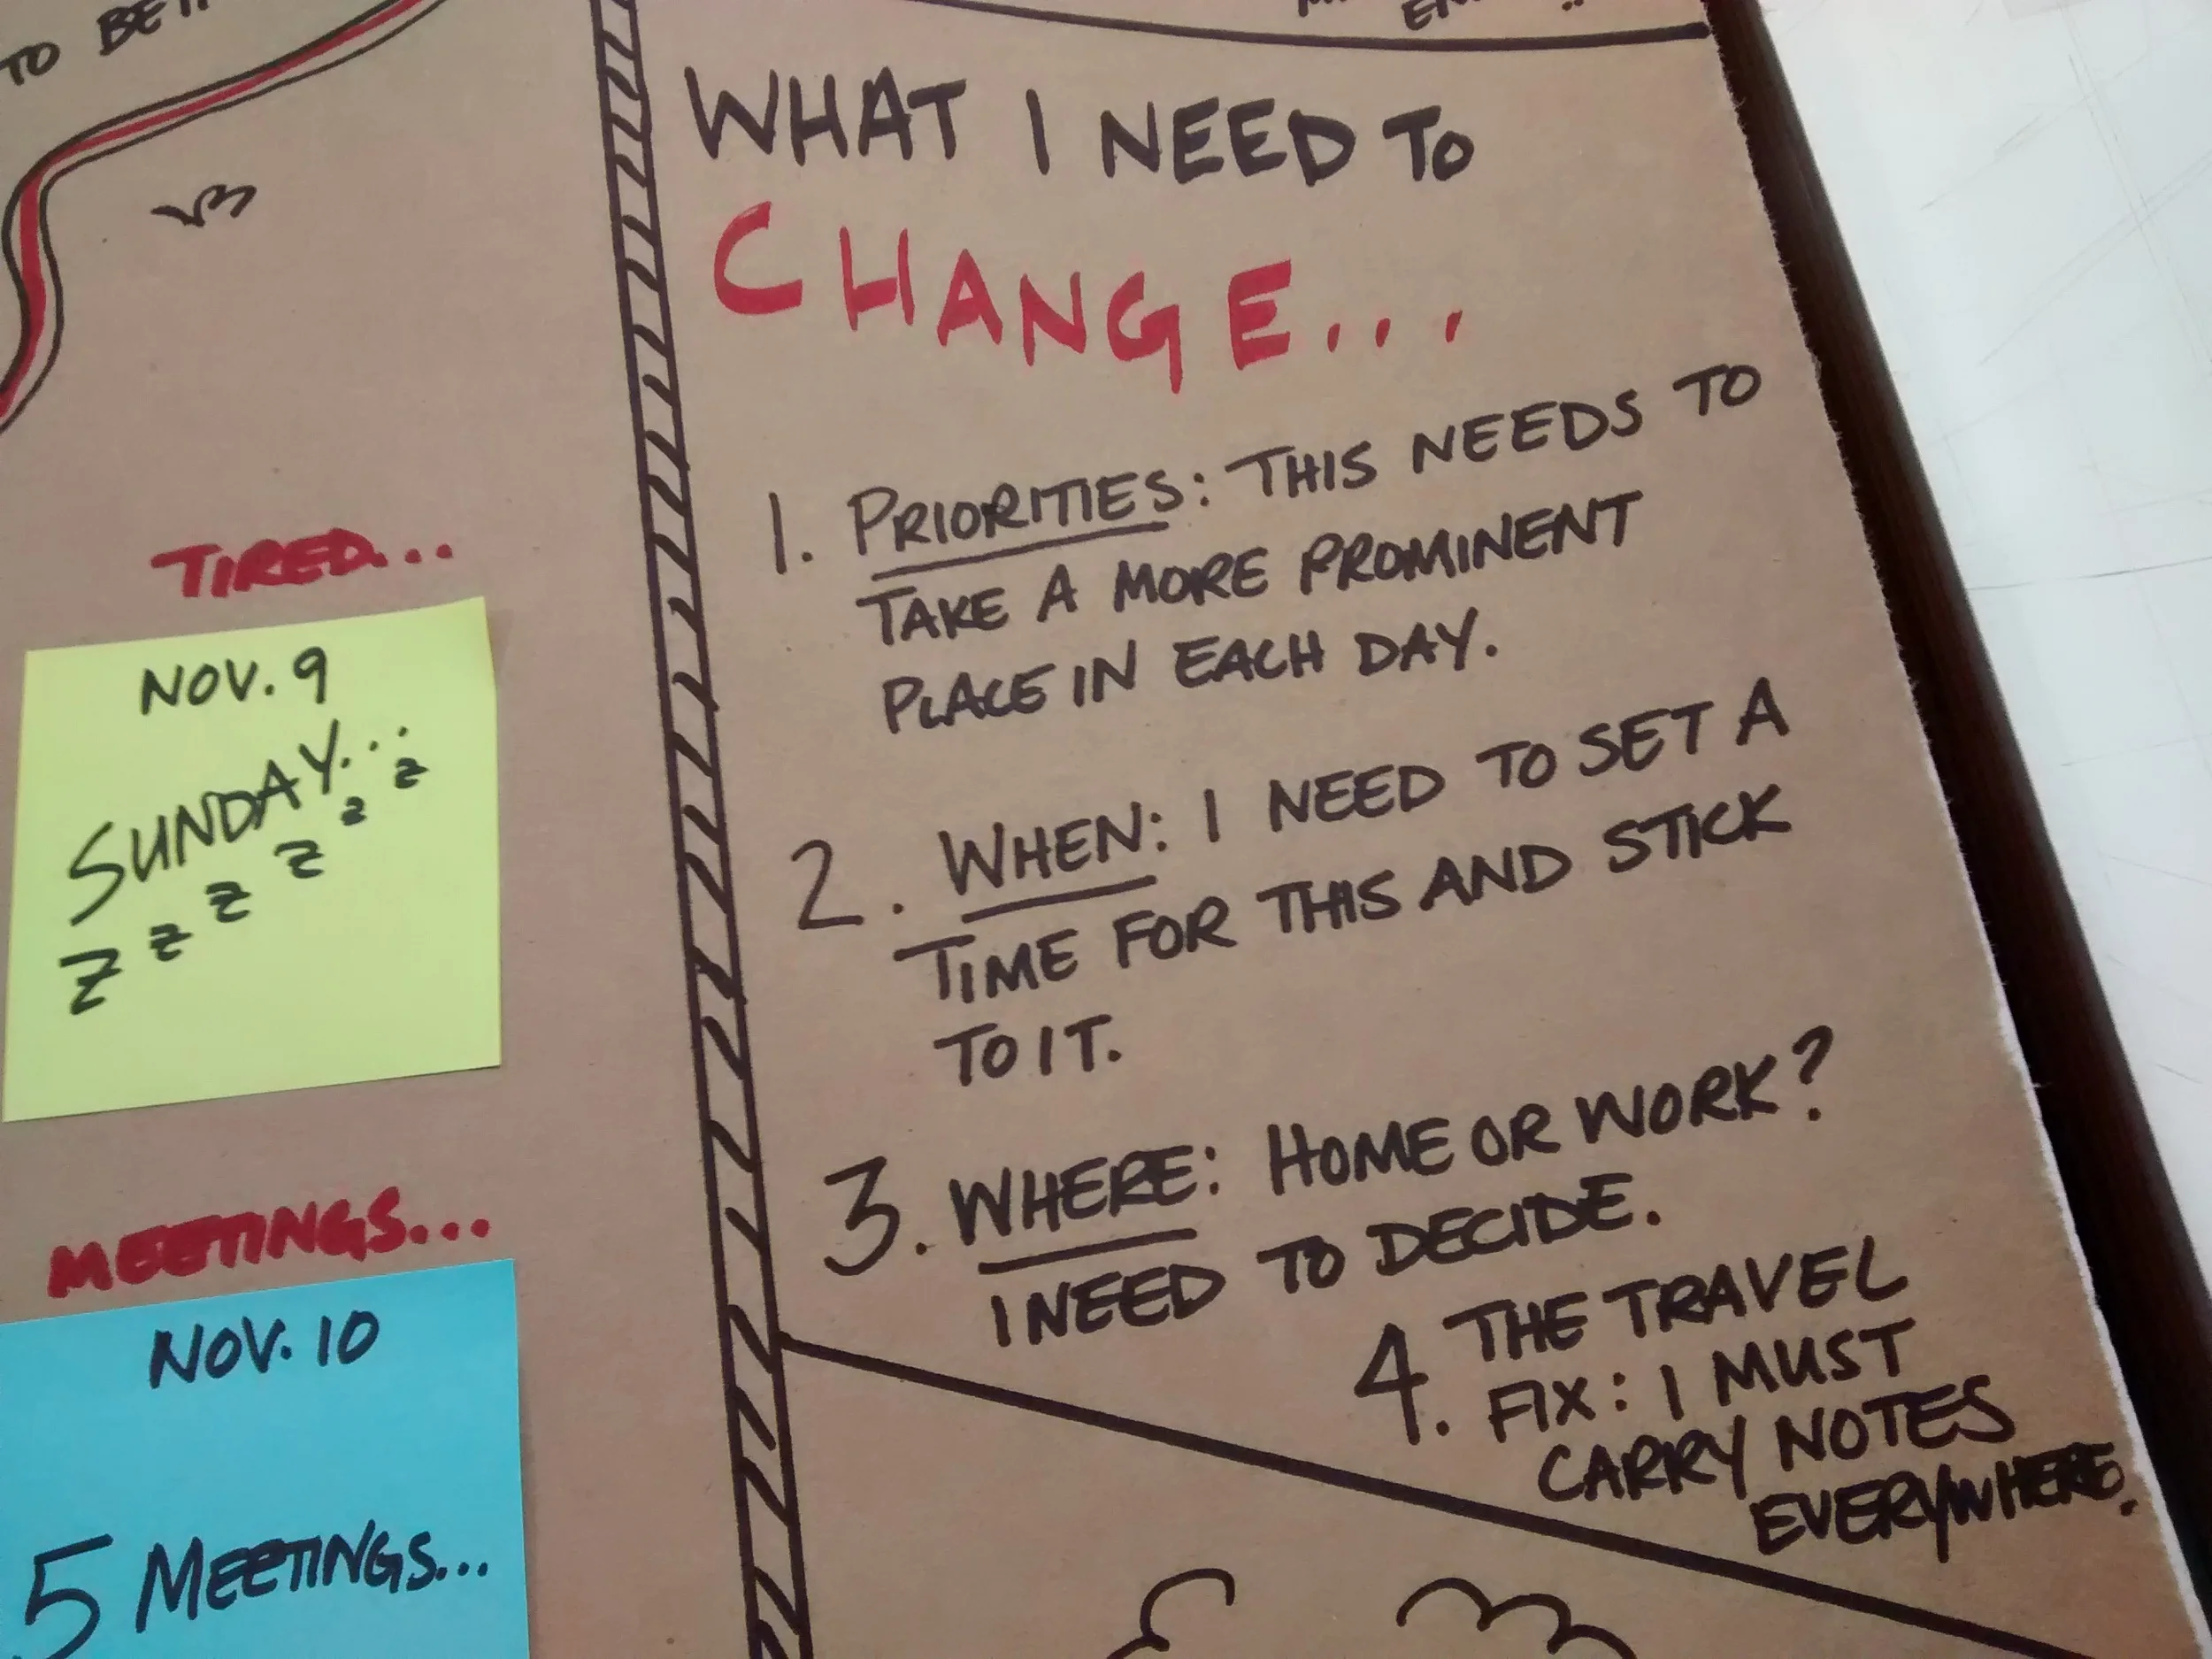 TO
WHAT I NEED TO
CHANGE...
1. PRIORITIES: THIS NEEDS TO
TAKE A MORE PROMINENT
PLACE IN EACH DAY.
2. WHEN: I NEED TO SET A
TIME FOR THIS AND STICK
TO IT.
3. WHERE: HOME OR WORK?
I NEED TO DECIDE.
4. THE TRAVEL
FIX: I MUST
CARRY NOTES
EVERYWHERE.
TIRED...
NOV. 9
SUNDAY...
Z Z Z Z Z Z
MEETINGS...
NOV. 10
5 MEETINGS...